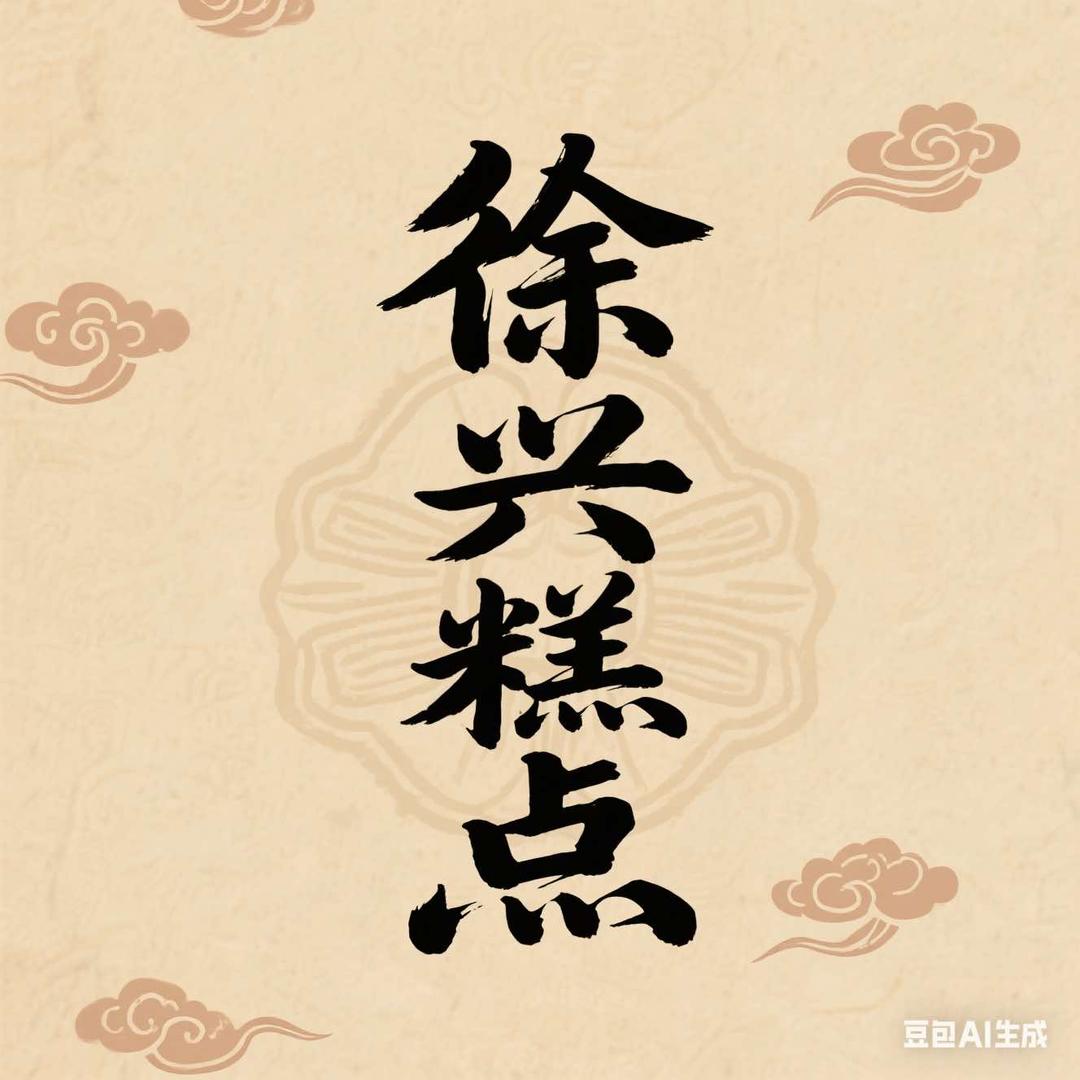 徐兴糕点
豆包AI生成